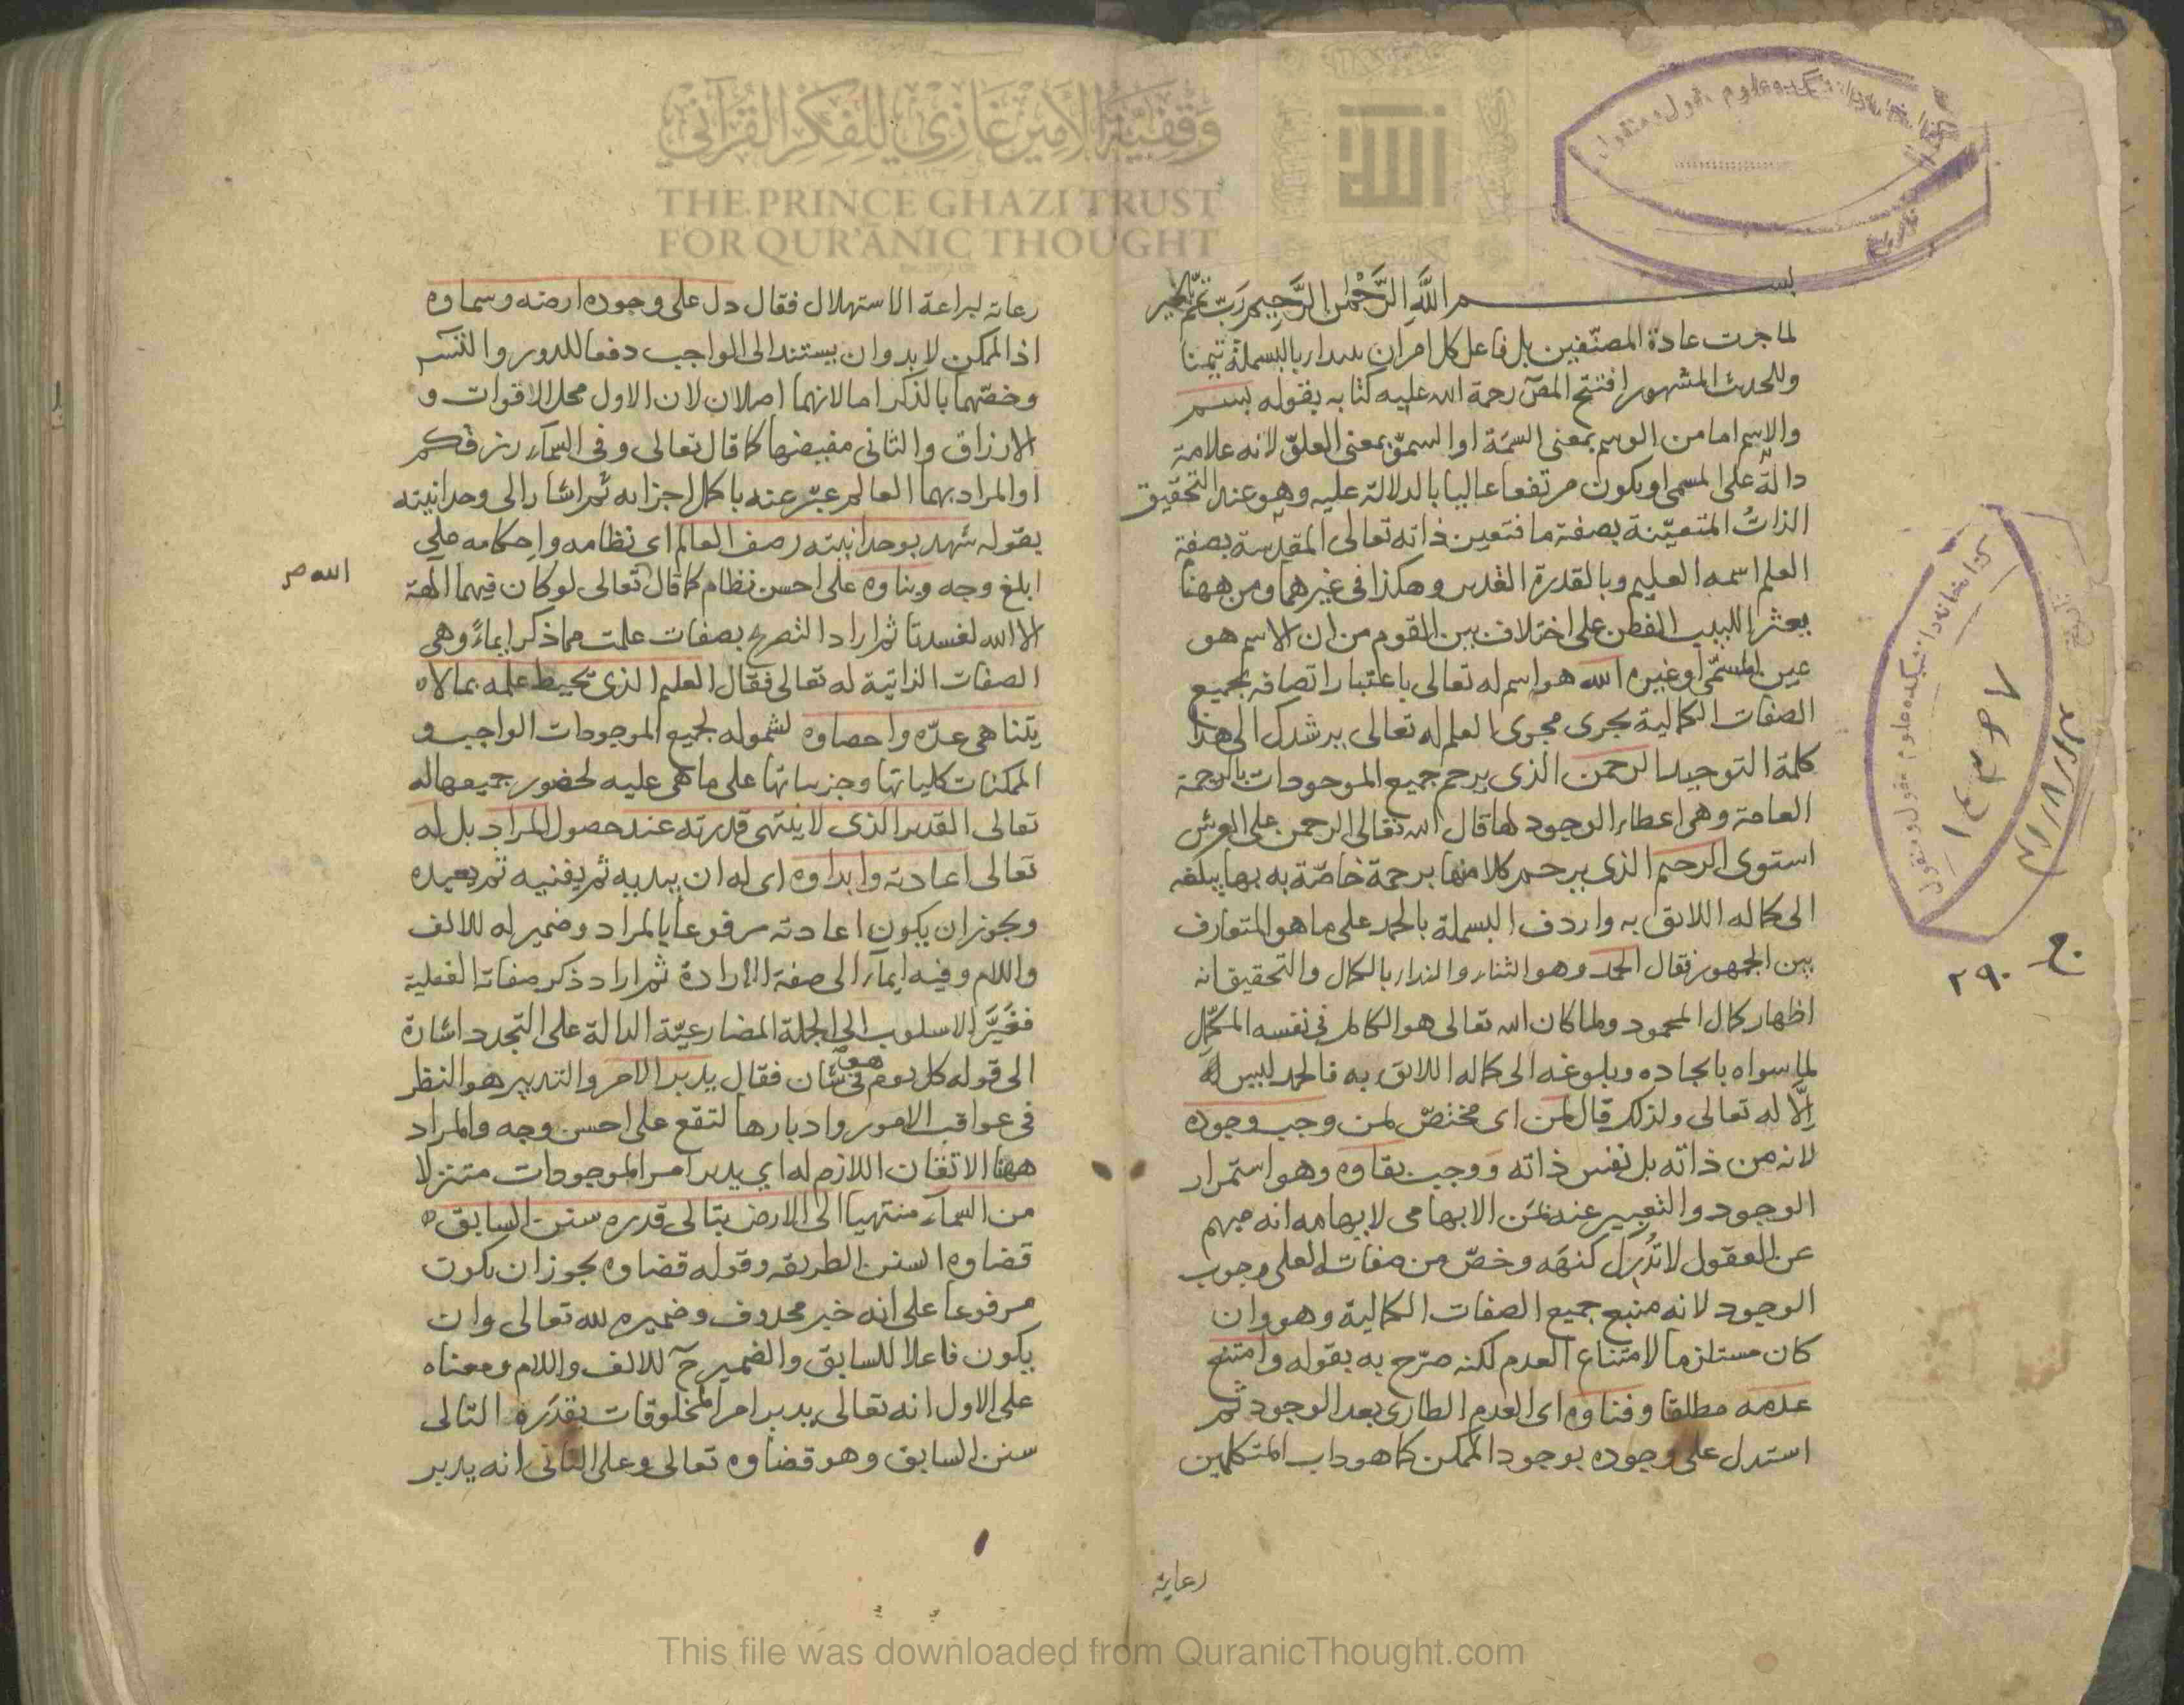 بسم الله الرحمن الرحيم رب تمم بالخير
لما جرت عادة المصنفين بل فاعل كل امر ان يبدا بالبسملة تيمنا
وللحديث المشهور افتتح المصنف رحمة الله عليه كتابه بقوله بسم
والاسم اما من الوسم بمعنى السمة او السمو بمعنى العلو لانه علامة
دالة على المسمى او يكون مرتفعا عاليا بالدلالة عليه وهو عند التحقيق
الذات المتعينة بصفة ما فتعين ذاته تعالى المقدسة بصفة
العلم اسمه العليم وبالقدرة القدير وهكذا في غيرهما ومن ههنا
يعثر اللبيب الفطن على اختلاف بين القوم من ان الاسم هو
عين المسمى او غيره الله هو اسم له تعالى باعتبار اتصافه بجميع
الصفات الكمالية يجرى مجرى العلم له تعالى يرشدك الى هذا
كلمة التوحيد الرحمن الذى يرحم جميع الموجودات بالرحمة
العامة وهى اعطاء الوجود لها قال الله تعالى الرحمن على العرش
استوى الرحيم الذى يرحم كلا منها برحمة خاصة به بها يبلغه
الى كماله اللائق به واردف البسملة بالحمد على ما هو المتعارف
بين الجمهور فقال الحمد وهو الثناء والنداء بالكمال والتحقيق انه
اظهار كمال المحمود ولما كان الله تعالى هو الكامل في نفسه المكمل
لما سواه بايجاده وبلوغه الى كماله اللائق به فالحمد ليس له
إلا له تعالى ولذلك قال لمن اى مختص لمن وجب وجوده
لانه من ذاته بل نفس ذاته ووجب بقاوه وهو استمرار
الوجود والتعبير عنه بمن الابهامى لايهامه انه مبهم
عن العقول لا تدرك كنهه وخص من صفاته العلى وجوب
الوجود لانه منبع جميع الصفات الكمالية وهو وان
كان مستلزما لامتناع العدم لكنه صرح به بقوله وامتنع
عدمه مطلقا وفناوه اى العدم الطارى بعد الوجود ثم
استدل على وجوده بوجود الممكن كما هو داب المتكلمين
رعاية
رعاية لبراعة الاستهلال فقال دل على وجوده ارضه وسماوه
اذ الممكن لابد وان يستند الى الواجب دفعا للدور والتسـ
وخصهما بالذكر اما لانهما اصلان لان الاول محل الاقوات و
الارزاق والثانى مفيضها كما قال تعالى وفى السماء رزقكم
او المراد بهما العالم عبر عنه باكمل اجزائه ثم اشار الى وحدانيته
بقوله شهد بوحدانيته رصف العالم اى نظامه واحكامه على
ابلغ وجه وبناوه على احسن نظام كما قال تعالى لو كان فيهما آلهة
الله صر
الا الله لفسدتا ثم اراد التصريح بصفات علمت مما ذكر ايماءً وهى
الصفات الذاتية له تعالى فقال العليم الذى يحيط علمه بما لا
يتناهى عده واحصاوه لشموله لجميع الموجودات الواجب و
الممكنات كلياتها وجزئياتها على ما هى عليه لحضور جميعها له
تعالى القدير الذى لا ينتهى قدرته عند حصول المراد بل له
تعالى اعادته وابداوه اى له ان يبديه ثم يفنيه ثم يعيده
ويجوز ان يكون اعادته مرفوعا بالمراد وضمير له للالف
واللام وفيه ايماء الى صفة الارادة ثم اراد ذكر صفاته الفعلية
فغير الاسلوب الى الجملة المضارعية الدالة على التجدد اشارة
الى قوله كل يوم هو في شان فقال يدبر الامر والتدبير هو النظر
في عواقب الامور وادبارها لتقع على احسن وجه والمراد
ههنا الاتقان اللازم له اي يدبر امر الموجودات متنزلا
من السماء منتهيا الى الارض يتالى قدره سنن السابق
قضاوه السنن الطريقه وقوله قضاوه يجوز ان يكون
مرفوعا على انه خبر محذوف وضميره لله تعالى وان
يكون فاعلا للسابق والضمير ح للالف واللام ومعناه
على الاول انه تعالى يدبر امر المخلوقات بقدره التالى
سنن السابق وهو قضاوه تعالى وعلى الثانى انه يدبر
خ
٢٩٠
وقفية الأمير غازي للفكر القرآني
THE PRINCE GHAZI TRUST
FOR QUR'ANIC THOUGHT
This file was downloaded from QuranicThought.com